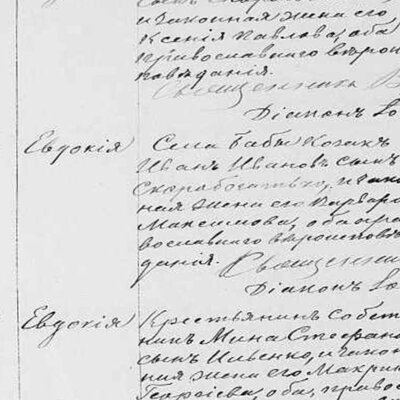 и законная жена его
Ксенія Павлова, оба
православнаго вѣроис
повѣданія.
Священникъ
Діаконъ
Евдокія
Села Бабы Козакъ
Иванъ Ивановъ сынъ
Скоробогатько, и закон
ная жена его Варвара
Максимова, оба пра
вославнаго вѣроисповѣ
данія.
Священникъ
Діаконъ
Евдокія
Крестьянинъ собст
нникъ Мина Стефано
сынъ Ивенко, и закон
ная жена его Макрина
Георгіева, оба, правос